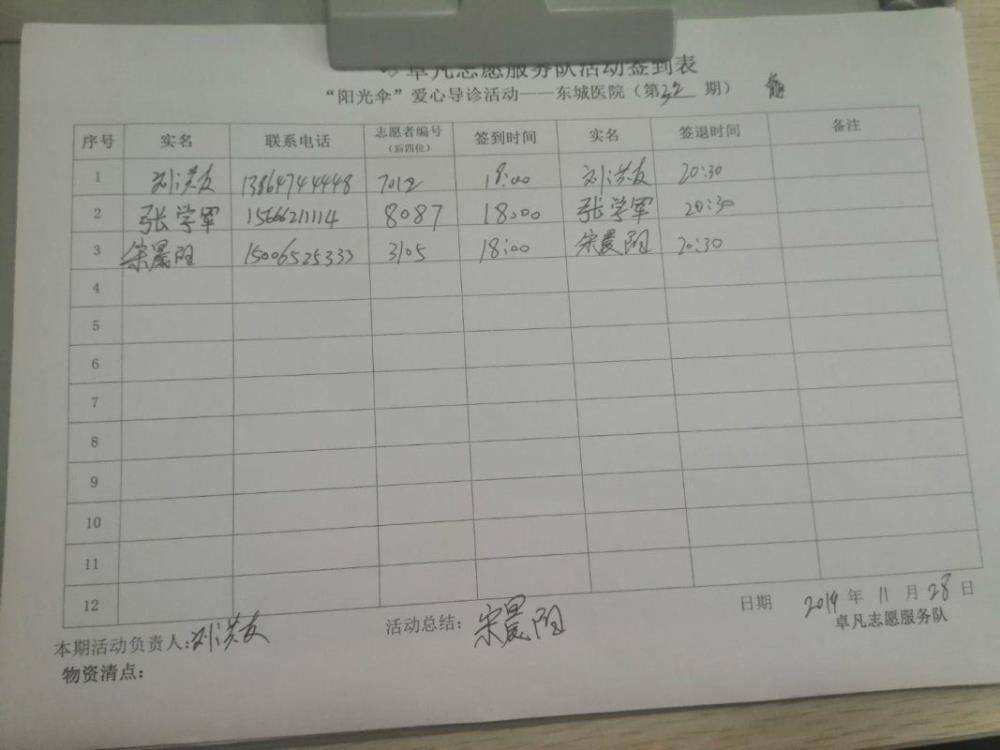 卓凡志愿服务队活动签到表
“阳光伞”爱心导诊活动——东城医院（第32期）
序号 实名 联系电话 志愿者编号（后四位） 签到时间 实名 签退时间 备注
1 刘洪友 13864744448 7012 18:00 刘洪友 20:30
2 张学军 15666211114 8087 18:00 张学军 20:30
3 宋晨阳 15006525333 3105 18:00 宋晨阳 20:30
4
5
6
7
8
9
10
11
12
日期 2019年11月28日
本期活动负责人:刘洪友 活动总结：宋晨阳 卓凡志愿服务队
物资清点：